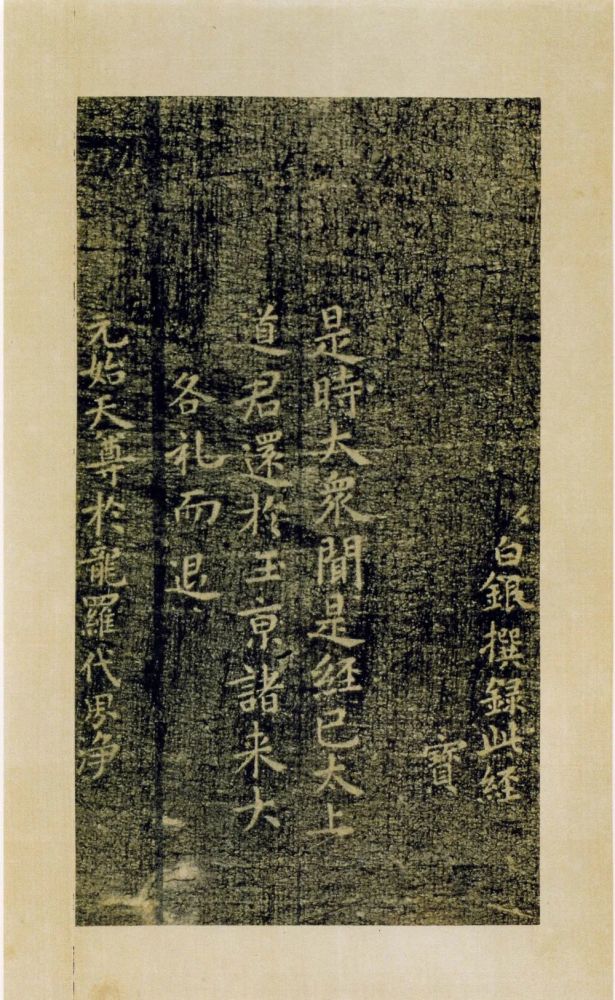 白銀撰録此経
寶
是時大衆聞是経已太上
道君還於玉京諸来大
各礼而退
元始天尊於龍羅代界净